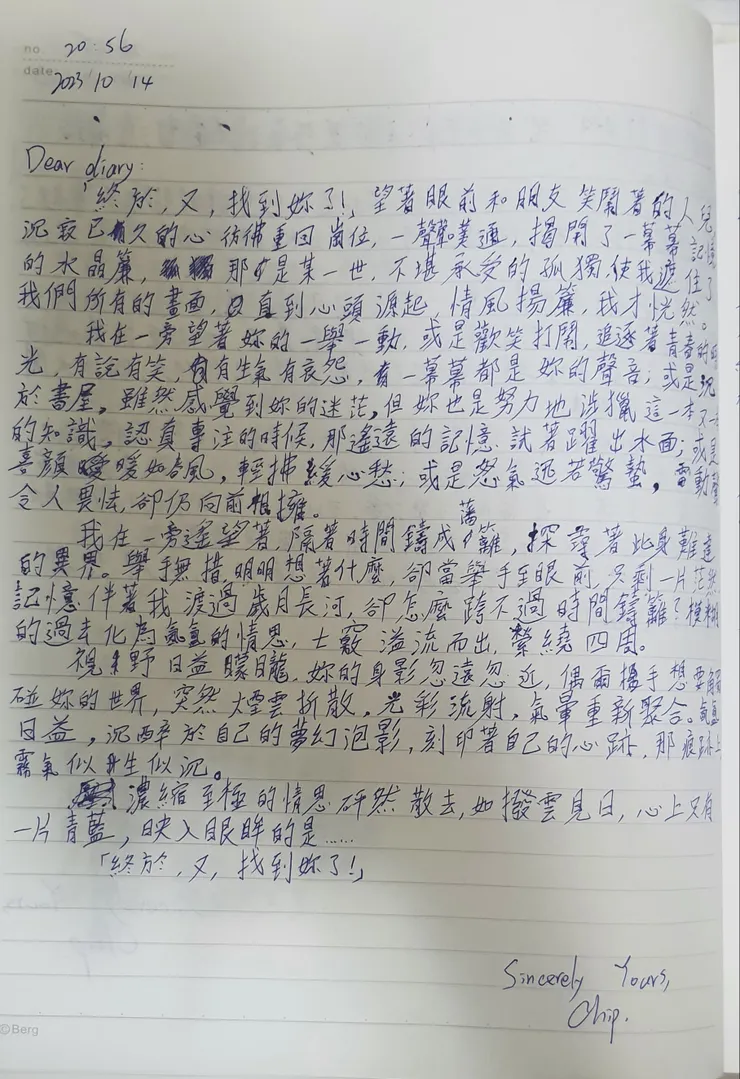 no. 20:56
date 2023/10/14
Dear diary:
「終於，又，找到妳了!」望著眼前和朋友笑鬧著的人兒
沉寂已久的心彷彿重回崗位，一聲噗通，揭開了一幕幕記憶
的水晶簾，那是某一世，不堪承受的孤獨使我遮住了
我們所有的畫面，直到心頭源起，情風揚簾，我才恍然。
我在一旁望著妳的一舉一動，或是歡笑打鬧，追逐著青春的時
光，有說有笑，有生氣有哀怨，一幕幕都是妳的聲音；或是沉
於書屋，雖然感覺到妳的迷茫，但妳也是努力地涉獵這一本又一本
的知識，認真專注的時候，那遙遠的記憶試著躍出水面；或是
喜顏曖暖如春風，輕拂緩心愁；或是怒氣迅若驚蟄，雷動聲
令人畏怯，卻仍向前相擁。
我在一旁遙望著，隔著時間鑄成藩籬，探尋著此身難達
的異界。舉手無措明明想著什麼，卻當舉手至眼前，只剩一片茫然
記憶伴著我渡過歲月長河，卻怎麼跨不過時間鑄籬？模糊
的過去化為氤氳的情思，七竅溢流而出，縈繞四周。
視野日益矇矓，妳的身影忽遠忽近，偶爾擡手想要觸
碰妳的世界，突然煙雲折散，光彩流射，氣暈重新聚合。氤氳
日益，沉醉於自己的夢幻泡影，刻印著自己的心跡，那痕跡上
霧氣似生似沉。
濃縮至極的情思砰然散去，如撥雲見日，心上又有
一片青藍，映入眼眸的是......
「終於，又，找到妳了!」
Sincerely Yours,
Chip.
©Berg